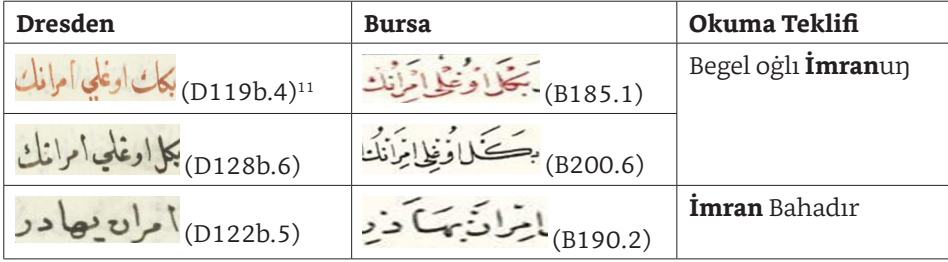 Dresden Bursa Okuma Teklifi
بكك اوغلي امرانك (D119b.4)¹¹ بكل اوغلى امرانك (B185.1) Begel oġlı İmranuŋ
بكل اوغلي امرانك (D128b.6) بكل اوغلى امرانك (B200.6)
امران بهادر (D122b.5) امران بهادر (B190.2) İmran Bahadır